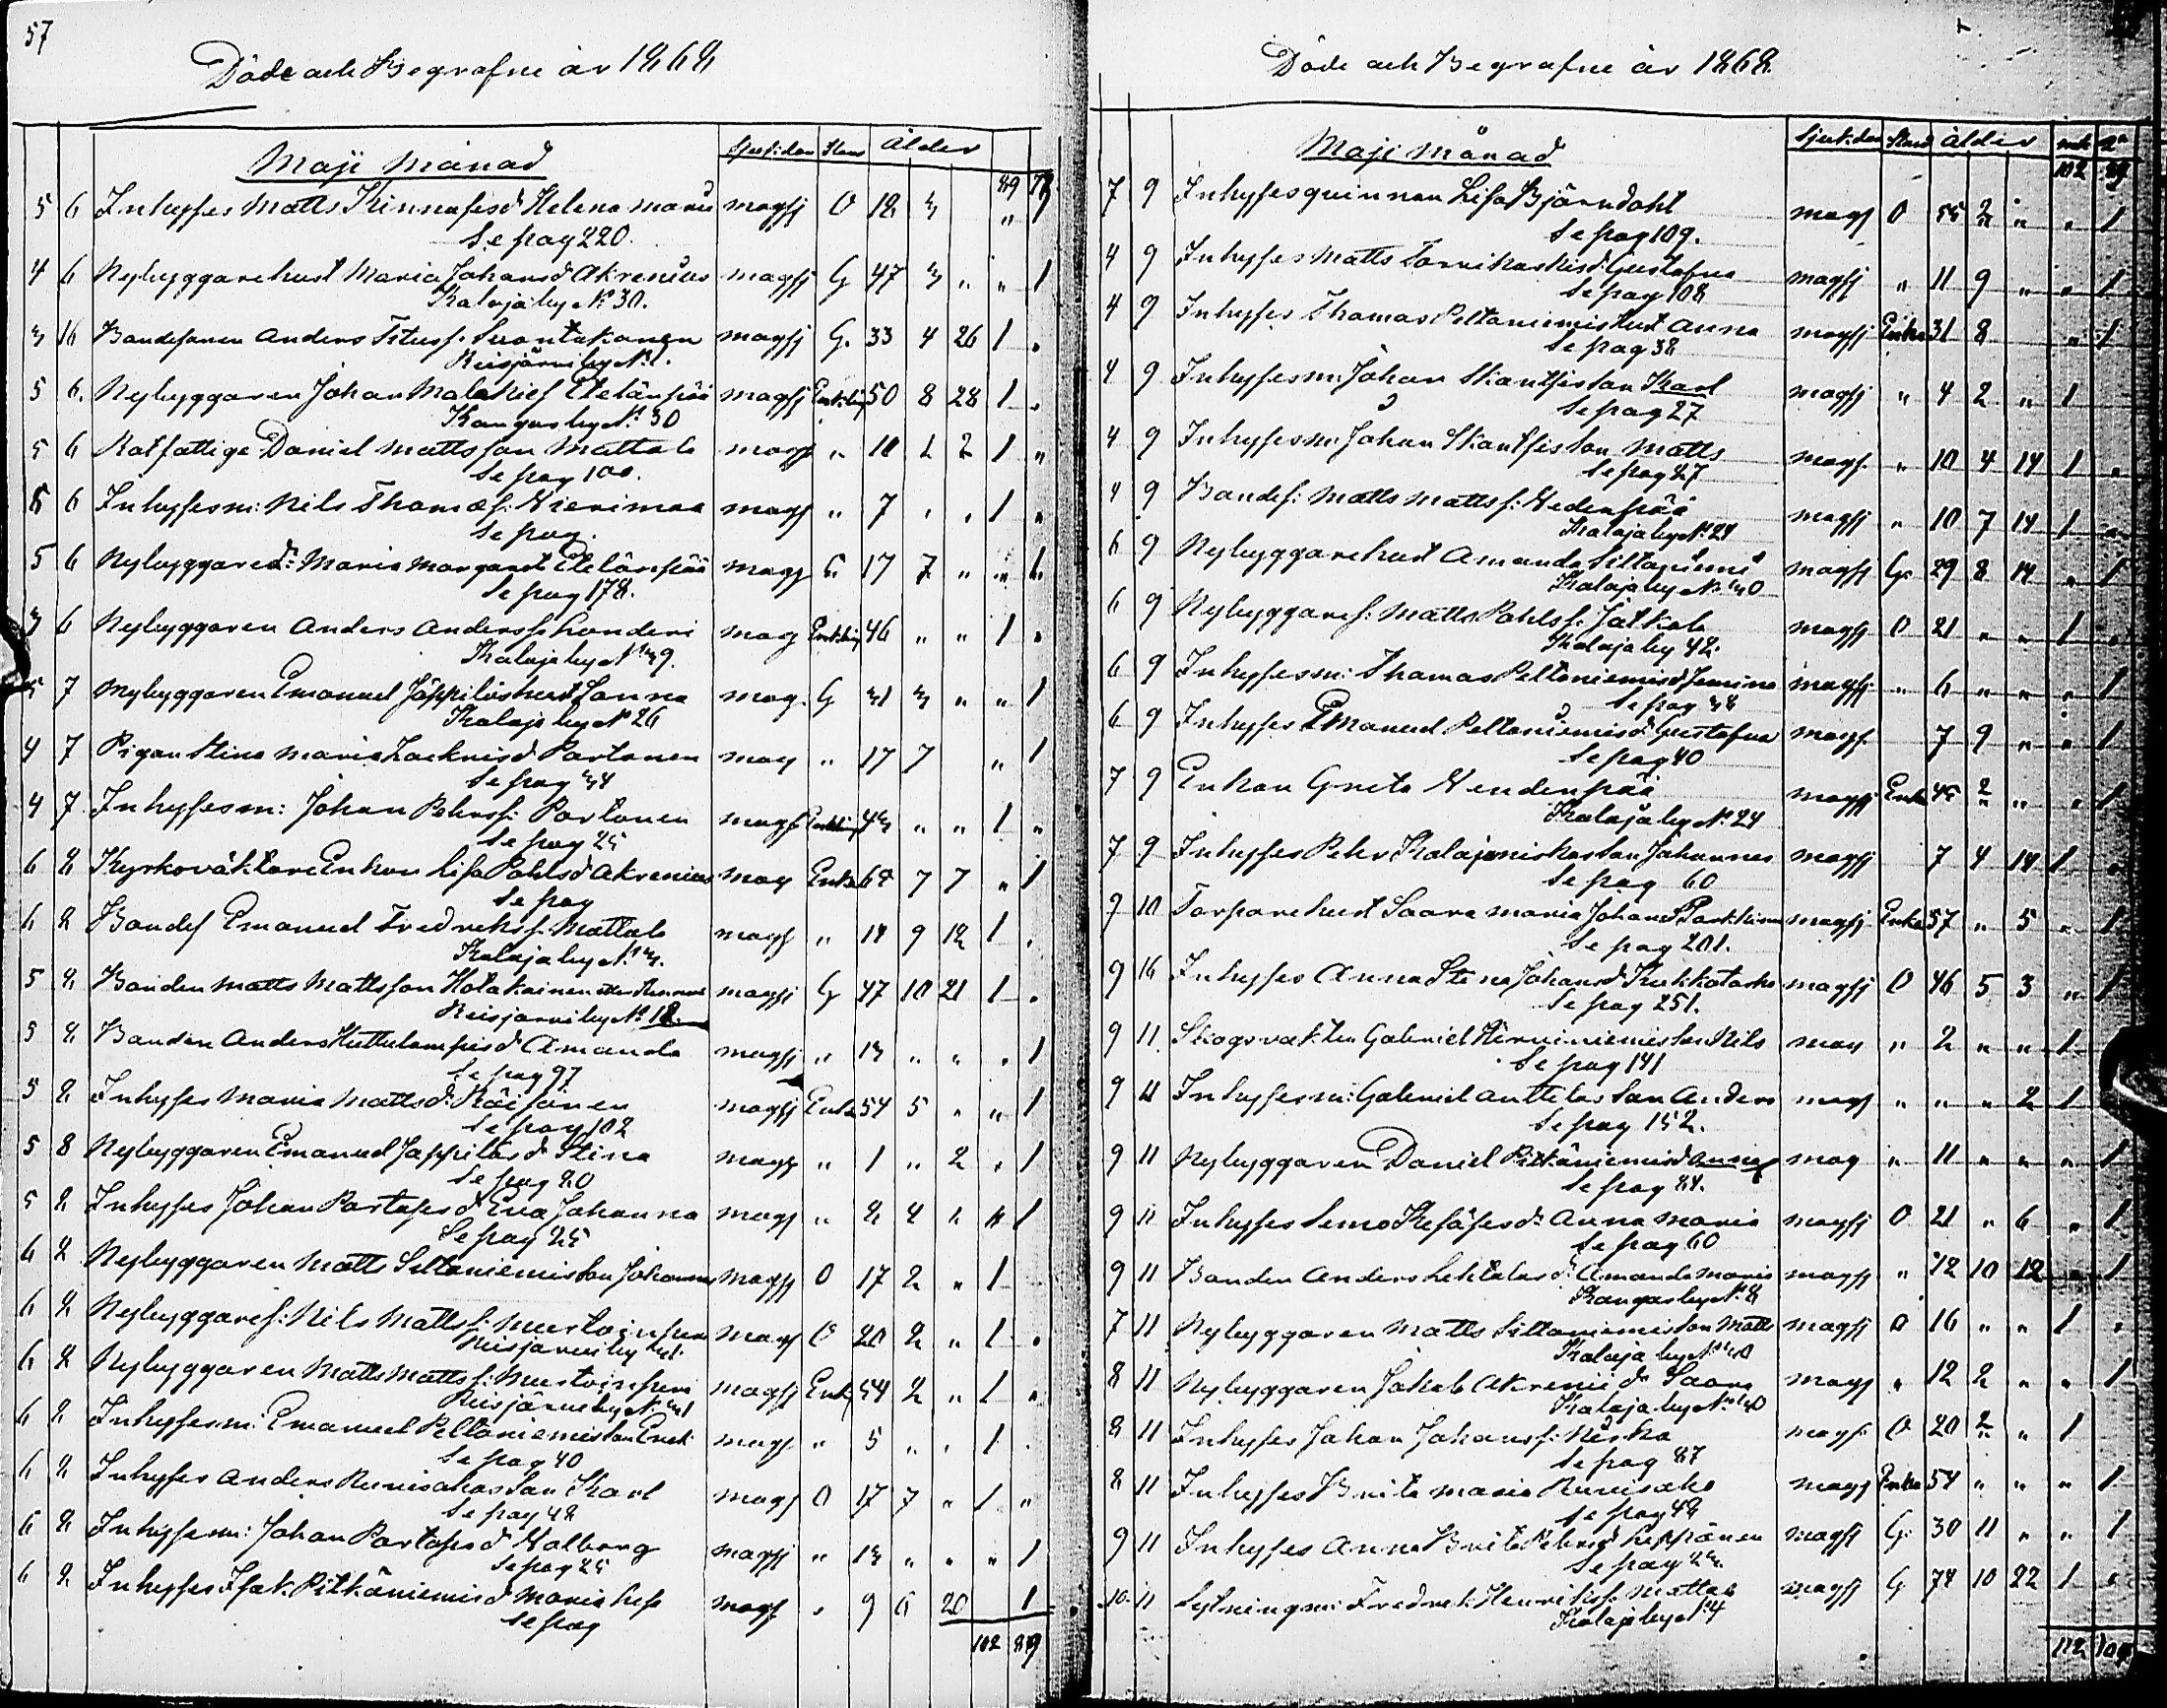 57
Döde och Begrafne år 1868
Maji Månad Sjukdom Stånd Ålder
89 78
5 6 Inhyses Matts Kinnases d. Helena Maria magsj O 12 3 " 1
Se pag 220.
4 6 Nybyggarehust Maria Johansd Akrenius magsj G 47 3 " " 1
Kalajaby No 30.
3 16 Bondesonen Anders Titus s. 33 4 26 1 "
Reisjärvi by No 1.
5 6. Nybyggaren Johan Malakies Eteläinpää magsj Enkling 50 8 28 1 "
Kangas by No 30
5 6 Rotfattige Daniel Mattsson Mattala magsj " 10 1 2 1 "
Se pag 100.
5 6 Inhysesm: Nils Thomæs: Nierimaa magsj " 7 " " 1 "
Se pag.
5 6 Nybyggared: Maria Margaret Eteläinpää magsj " 17 7 " " 1
Se pag 178.
3 6 Nybyggaren Anders Anderss. magsj Enkling 46 " " 1 "
Kalajaby No 39.
5 7 Nybyggaren Emanuel Jäppiläs hust Sanna mag. G 31 3 " " 1
Kalaja by No 26
4 7 Pigan Stina Maria Zackrisd Partanen mag " 17 7 " 1
Se pag 34
4 7 Inhysesm: Johan Pehrss: Partanen magsj Enkling 43 " " 1 "
Se pag 25
6 8 Kyrkoväktare Enkan Lisa Pahlsd Akrenius mag Enka 64 7 7 " 1
Se pag
6 8 Bondes Emanuel Fredrikss. Mattala magsj " 14 9 12 1 "
Kalajaby No 3.
5 8 Bonden Matts Mattsson Hotakainen magsj G 47 10 21 1 "
Reisjarvi by No 12.
5 8 Bonden Anders Huttulampis d Amanda magsj " 13 " " " 1
Se pag 97
5 8 Inhyses Maria Mattsd: Räisänen magsj Enka 54 5 " " 1
Se pag 102
5 8 Nybyggaren Emanuel Jappiläs d Stina magsj " 1 " 2 " 1
Se pag 20
5 8 Inhyses Johan Partases d Eva Johanna magsj " 2 4 " " 1
Se pag 25
6 8 Nybyggaren Matts Siltaniemis son Johannes magsj O 17 2 " 1
6 8 Nybyggares: Nils Mattss: Mustoinperi magsj O 20 2 " 1 "
Reisjarvi by 31
6 8 Nybyggaren Matts Mattss: Mustoinperi magsj Enkl 54 2 " 1 "
Reisjärvi by No 31
6 8 Inhysesm: Emanuel Peltoniemis son Erik magsj " 5 " " 1 "
Se pag 40
6 8 Inhyses Anders Ruuisahas son Karl magsj O 17 7 " 1 "
Se pag 48
6 8 Inhysesm: Johan Partases d Valborg magsj " 13 " " " 1
Se pag 25
6 8 Inhyses Isak Pitkäniemis d Maria Lisa magsj " 9 6 20 1
Se pag
102 89
Döde och Begrafne år 1868.
Maji Månad Sjukdom Stånd Ålder
102 89
7 9 Inhysesquinnan Lisa Björndahl magsj O 55 2 " " 1
Se pag 109.
4 9 Inhyses Matts Gustafva magsj " 11 9 " " 1
Se pag 108
4 9 Inhyses Thomas Peltoniemis hust Anna magsj Enka 31 8 " 1
Se pag 38
4 9 Inhysesm: Johan Skantsis son Karl magsj " 4 2 " 1
Se pag 27
4 9 Inhysesm: Johan Skantsis son Matts magsj " 10 4 14 1 "
Se pag 27
4 9 Bondes: Matts Mattss: Vedenpää magsj " 10 7 14 1 "
Kalajaby No 24
6 9 Nybyggarehust Amanda Siltaniemi magsj G 29 8 14 " 1
Kalajaby No 30
6 9 Nybyggares: Matts Pahlss: Jatkola magsj O 21 " " 1 "
Kalajaby 42.
6 9 Inhysesm: Thomas Peltoniemis d magsj " 6 " " " 1
Se pag 38
6 9 Inhyses Emanuel Peltoniemis d Gustafva magsj 7 9 " " 1
Se pag 40
7 9 Enkan Greta Vendenpää magsj Enka 45 2 " " 1
Kalajaby No 24
7 9 Inhyses Pehr Kalajaniskas son Johannes magsj 7 4 14 1 "
Se pag 60
9 10 Torparehust Saara Maria Johansd magsj Enka 57 " 5 " 1
Se pag 201.
9 16 Inhyses Anna Stina Johansd Kukkotaska magsj O 46 5 3 " 1
Se pag 251.
9 11 Skogsvakten Gabriel Hirviniemis son Nils mag " 2 " " 1
Se pag 141
9 11 Inhysesm: Gabriel Anttilas son Anders magsj " " " 2 1
Se pag 152.
9 11 Nybyggaren Daniel Pitkäniemis d Anna mag " 11 " " " 1
Se pag 84.
9 11 Inhyses Simo Kesäses d: Anna Maria magsj O 21 " 6 " 1
Se pag 60
9 11 Bonden Anders Lehtolas d: Amanda Maria magsj " 12 10 12 " 1
Kangasby No 8
7 11 Nybyggaren Matts Siltaniemis son Matts magsj O 16 " " 1 "
Kalaja by No 30
8 11 Nybyggaren Jakob Akrenii d: Saara magsj " 12 2 " " 1
Kalaja by No 30
8 11 Inhyses Johan Johanss: Niska magsj O 20 2 " 1
Se pag 87
8 11 Inhyses Brita Maria Ruuisaho magsj Enka 54 " " " 1
Se pag 48
9 11 Inhyses Anna Brita Pehrsd Leppänen magsj G. 30 11 " " 1
Se pag 23.
10 11 Sytningm: Fredrik Henrikss. Mattala magsj G 74 10 22 1 "
Kalaja by No 4
112 104